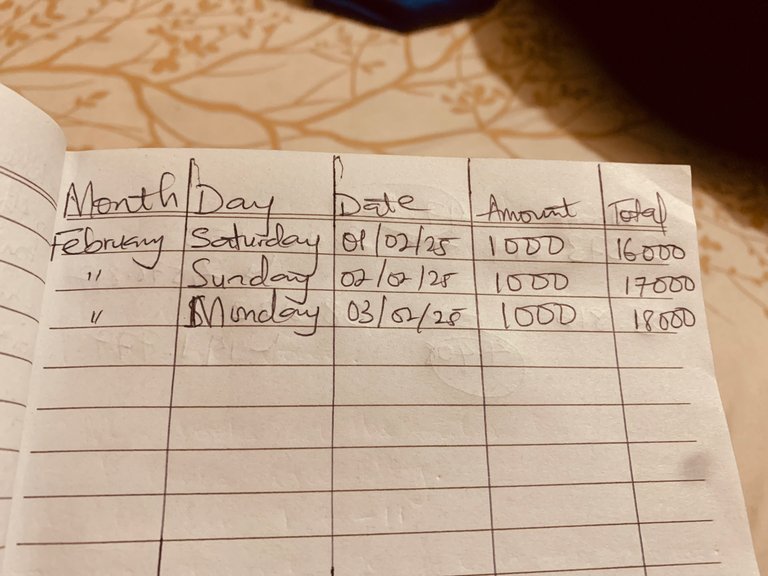 Month Day Date Amount Total
February Saturday 01/02/25 1000 16000
" Sunday 02/02/25 1000 17000
" Munday 03/02/25 1000 18000